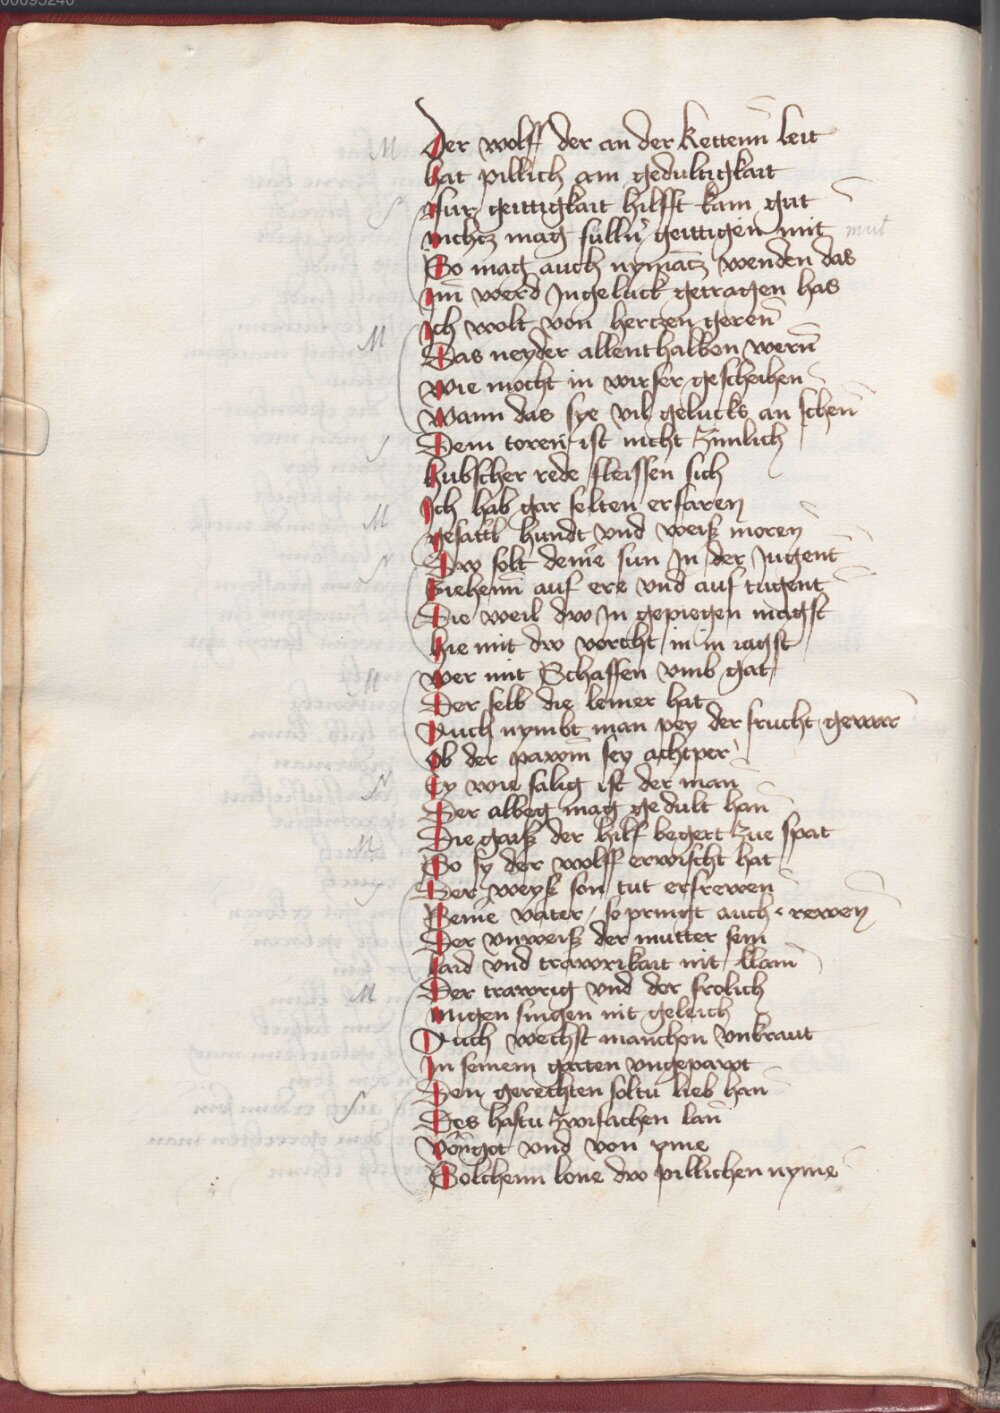 Der wolff der an der kettenn leit
hat pillich am gedultigkait
Fur geittigkait hilfft kam gut
nichtz mag fulln geittigen mit mut
So mag auch nymatz wenden das
Im werd Ingeluck getragen has
Ich wolt von hertzen geren
Das neyder allenthalben wern
Wie mocht in wirser gescheihen
Wann das sye vil gelucks an sehen
Dem toren ist nicht zimlich
hubscher rede fleissen sich
Ich hab gar selten erfaren
gesatll hundt vnd weiß moren
Dw solt deine sun In der Jugent
Ziehenn auf ere vnd auf tugent
Die weil dw In gepiegen magst
hie mit dw vorcht in in iagst
Wer mit Schaffen vmb gat
Der selb die lemer hat
Auch nymbt man pey der frucht gewar
Ob der pawm sey achtper
Ey wie salig ist der man
Der albeg mag gedult han
Die gaiß der hilf begert zue spat
So sy der wolff erwischt hat
Der weyß son tut erfrewen
Seine vater so pringt auch rewen
Der vnweiß der mutter sein
laid vnd trawrikait nit klain
Der trawrig vnd der frolich
mugen singen nit geleich
Auch wechst manchen vnkraut
In seinem garten vngepawt
Den gerechten soltu lieb han
Des hastu zwifachen lan
Von got vnd von yme
Solchenn lone dw pillichen nyme